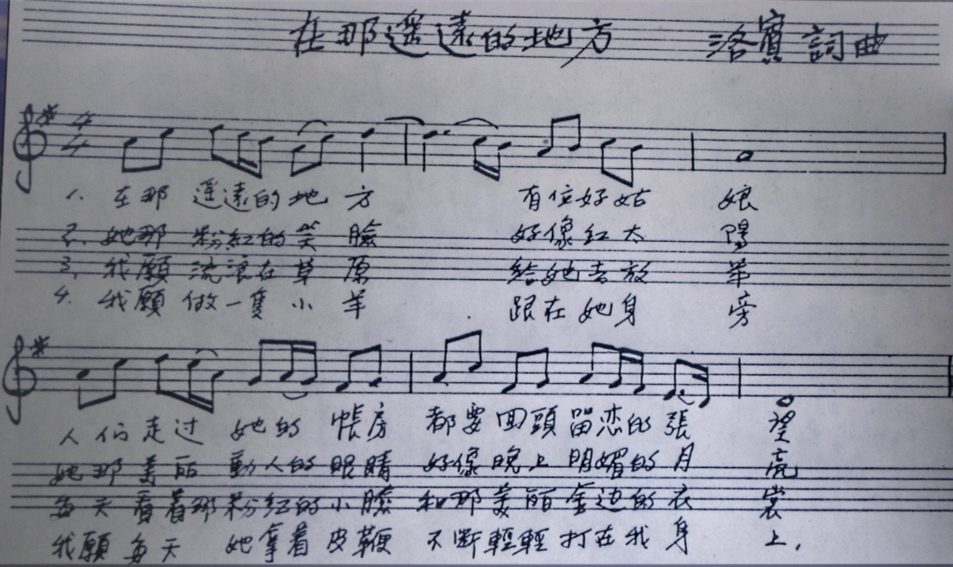 在那遥遠的地方 洛賓詞曲
4/4
1. 在那 遥遠的地 方 有位好姑 娘
2. 她那 粉紅的笑 臉 好像紅太 陽
3. 我願 流浪在草 原 給她去放 羊
4. 我願 做一隻小 羊 跟在她身 旁
人们走过 她的 帳房 都要回頭留恋的張 望
她那美丽 動人的眼睛 好像晚上明媚的月 亮
每天看着那粉紅的小臉 和那美丽金边的衣 裳
我願每天 她拿着皮鞭 不断輕輕打在我身 上.